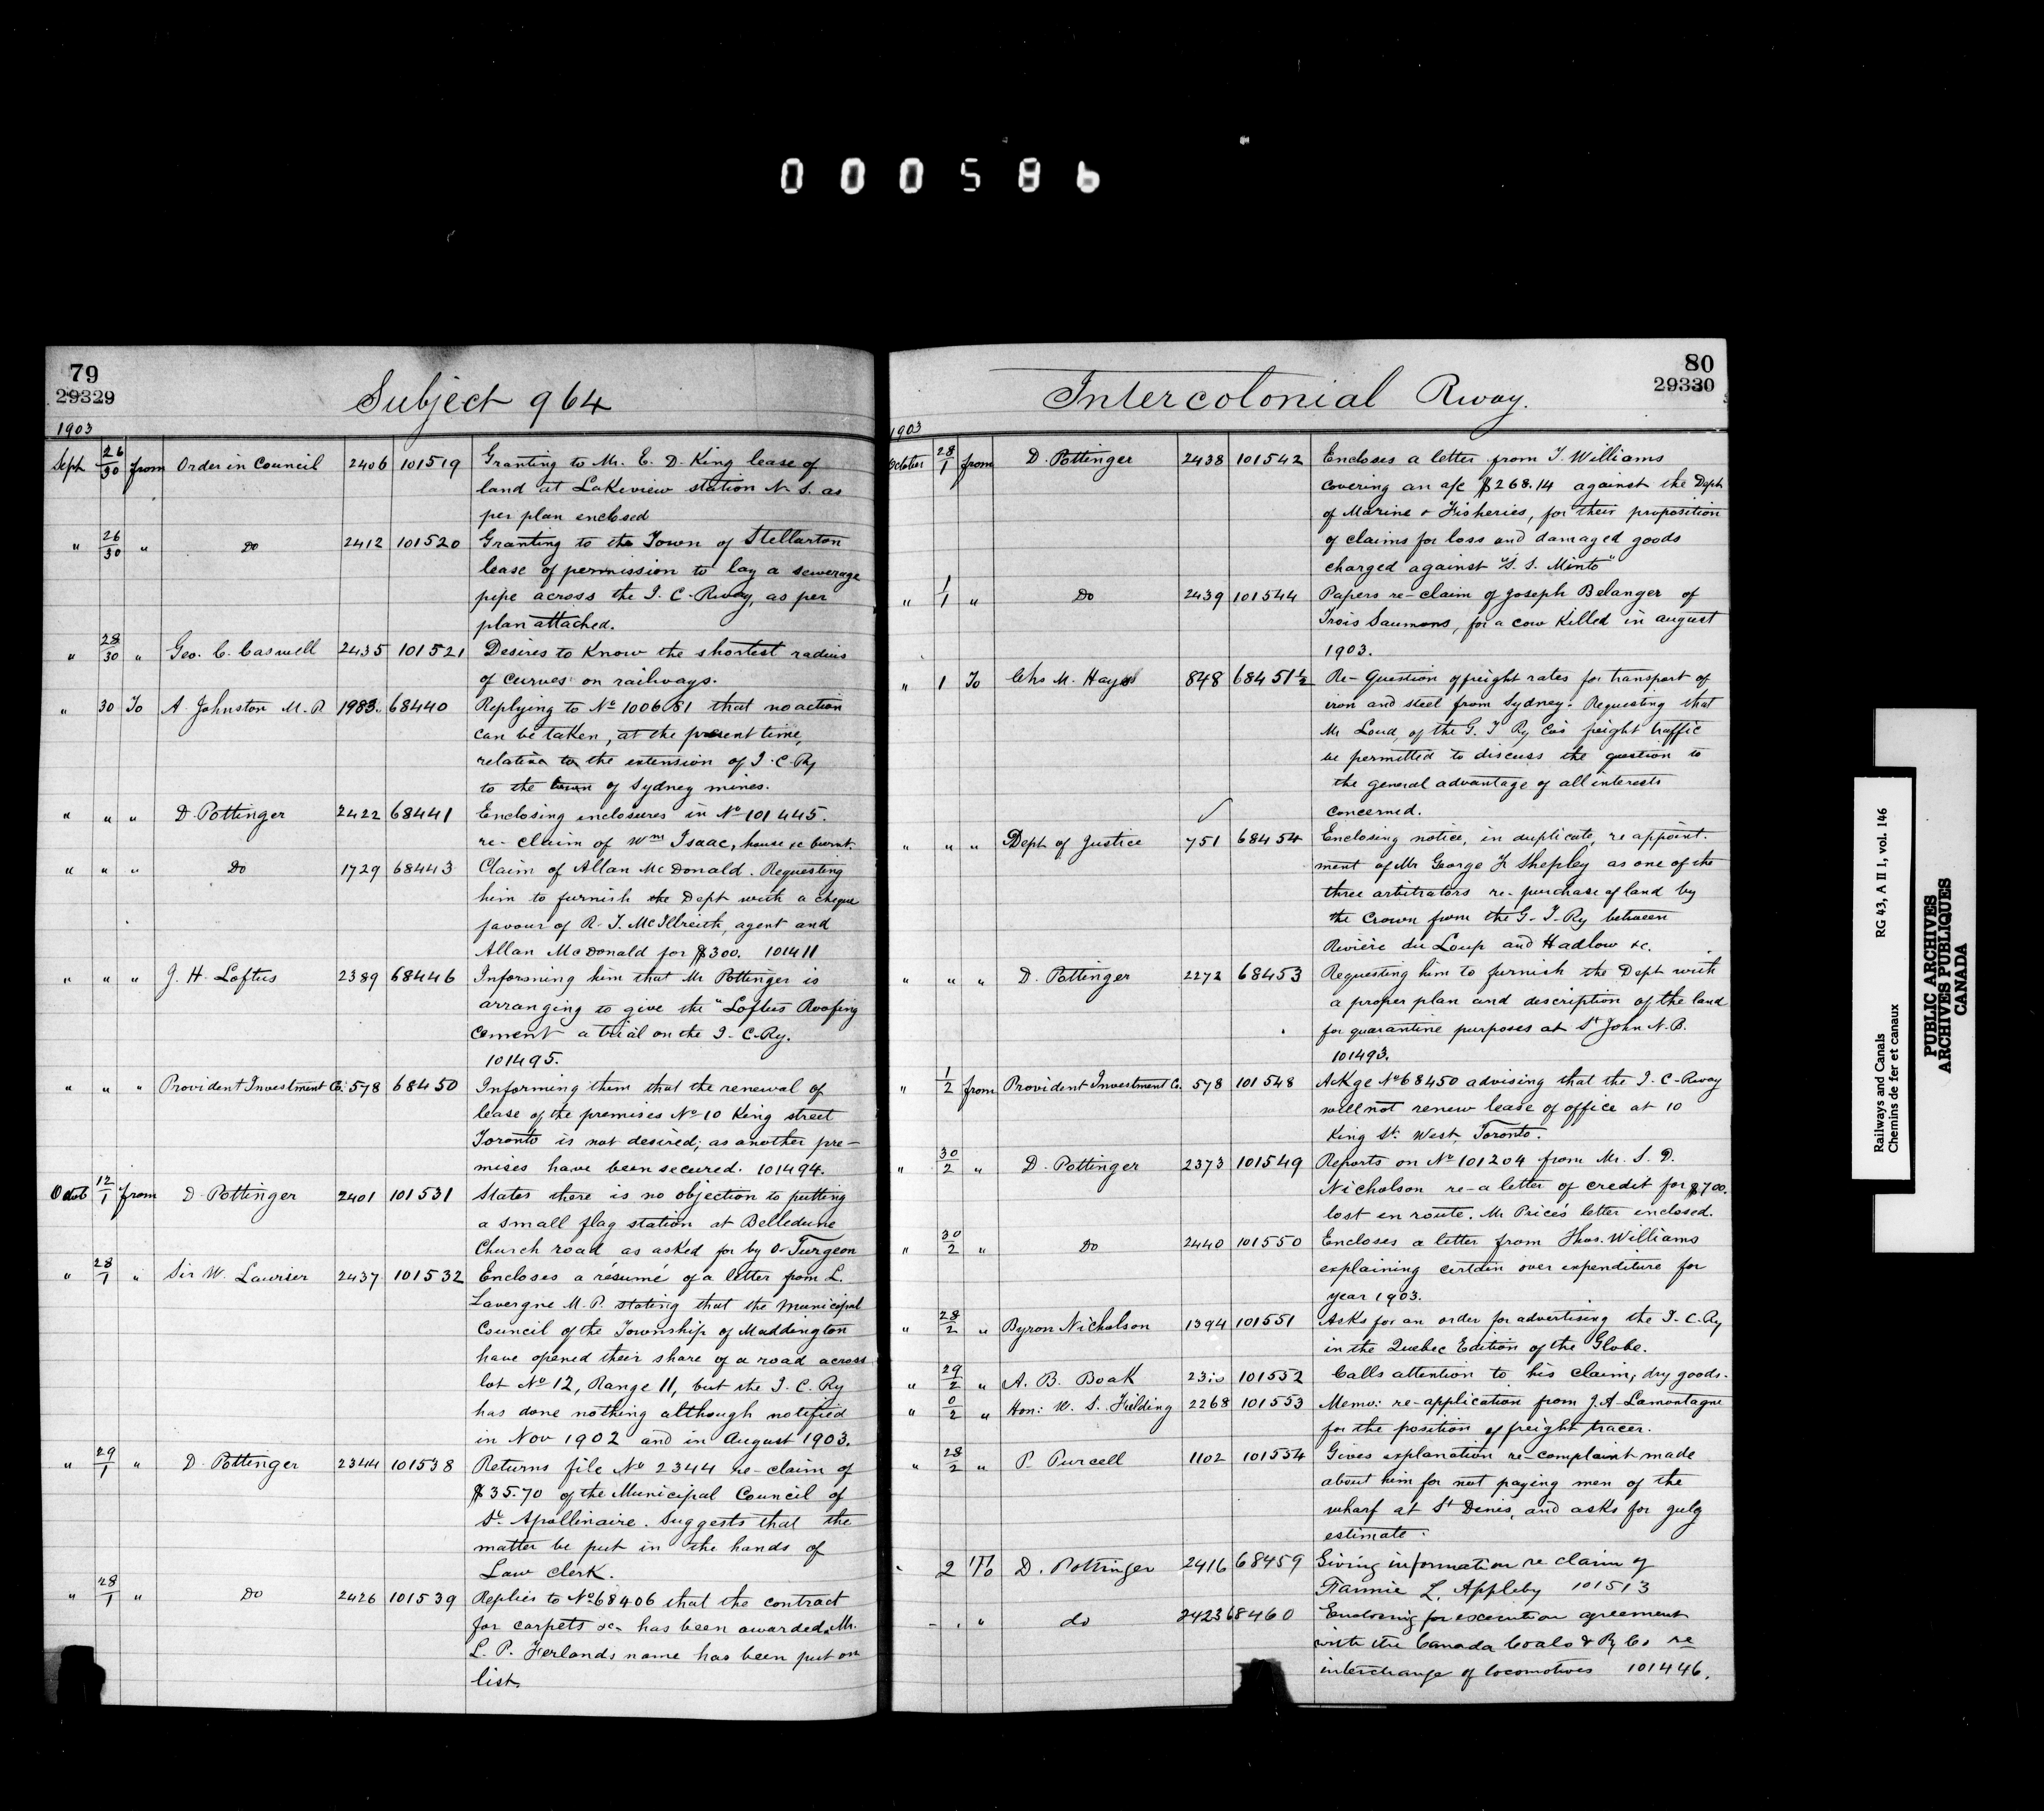 000586
79
29329
Subject 964
1903
Sept 26/30 from Order in Council 2406 101519 Granting to Mr. E. D. King lease of
land at Lakeview station N. S. as
per plan enclosed
" 26/30 " Do 2412 101520 Granting to the Town of Stellarton
lease of permission to lay a sewerage
pipe across the I. C. Rway, as per
plan attached.
" 28/30 " Geo. C. Caswell 2435 101521 Desires to Know the shortest radius
of curves on railways.
" 30 To A. Johnston M. P. 1983 68440 Replying to No 100681 that no action
can be taken, at the present time,
relative to the extension of I. C. Ry
to the town of Sydney mines.
" " " D. Pottinger 2422 68441 Enclosing enclosures in No 101445.
re-claim of Wm Isaac, house &c burnt
" " " Do 1729 68443 Claim of Allan McDonald. Requesting
him to furnish the Dept with a cheque
favour of R. T. McIlreith, agent and
Allan McDonald for $300. 101411
" " " J. H. Loftus 2389 68446 Informing him that Mr Pottinger is
arranging to give the "Loftus Roofing
Cement a trial on the I. C. Ry.
101495.
" " " Provident Investment Co. 578 68450 Informing them that the renewal of
lease of the premises No 10 King street
Toronto is not desired; as another pre-
mises have been secured. 101494.
Octob 12/1 from D. Pottinger 2401 101531 States there is no objection to putting
a small flag station at Belledune
Church road as asked for by O. Turgeon
" 28/1 " Sir W. Laurier 2437 101532 Encloses a résumé of a letter from L.
Lavergne M. P. stating that the Municipal
Council of the Township of Maddington
have opened their share of a road across
lot No 12, Range 11, but the I. C. Ry
has done nothing although notified
in Nov 1902 and in August 1903.
" 29/1 " D. Pottinger 2344 101538 Returns file No 2344 re-claim of
$35.70 of the Municipal Council of
St. Apollinaire. Suggests that the
matter be put in the hands of
Law Clerk.
" 28/1 " Do 2426 101539 Replies to No 68406 that the contract
for carpets &c has been awarded. Mr.
L. P. Ferlands name has been put on
list.
80
29330
Intercolonial Rway.
1903
October 28/1 from D. Pottinger 2438 101542 Encloses a letter from T. Williams
covering an a/c $268.14 against the Dept
of Marine & Fisheries, for their proposition
of claims for loss and damaged goods
charged against "S. S. Minto"
" 1/1 " Do 2439 101544 Papers re-claim of Joseph Belanger of
Trois Saumons, for a cow killed in august
1903.
" 1 To Chs M. Hays 848 68451½ Re-Question of freight rates for transport of
iron and steel from Sydney. Requesting that
Mr Loud, of the G. T Ry Co's freight traffic
be permitted to discuss the question to
the general advantage of all interests
concerned.
" " " Dept of Justice 751 68454 Enclosing notice, in duplicate, re appoint-
ment of Mr George F. Shepley as one of the
three arbitrators re-purchase of land by
the Crown from the G. T. Ry between
Rivière du Loup and Hadlow &c.
" " " D. Pottinger 2272 68453 Requesting him to furnish the Dept with
a proper plan and description of the land
for quarantine purposes at St John N.B.
101493.
" 1/2 from Provident Investment Co. 578 101548 Ackge No 68450 advising that the I. C. Rway
will not renew lease of office at 10
King St. West, Toronto.
" 30/2 " D. Pottinger 2373 101549 Reports on No 101204 from Mr. S. D.
Nicholson re-a letter of credit for $700.
lost en route. Mr Price's letter inclosed.
" 30/2 " Do 2440 101550 Encloses a letter from Thos. Williams
explaining certain over expenditure for
year 1903.
" 28/2 " Byron Nicholson 1394 101551 Asks for an order for advertising the I. C. Ry
in the Quebec Edition of the Globe.
" 29/2 " A. B. Boak 101552 Calls attention to his claim, dry goods.
" 0/2 " Hon: W. S. Fielding 2268 101553 Memo: re-application from J. A. Lamontagne
for the position of freight tracer.
" 28/2 " P. Purcell 1102 101554 Gives explanation re-complaint made
about him for not paying men of the
wharf at St Denis, and asks for
estimate.
2 To D. Pottinger 2416 68459 Giving information re claim of
Fannie L. Appleby 101513
" do 2423 68460 Enclosing for execution agreement
with the Canada Coals & Ry Co re
interchange of locomotives 101446.
Railways and Canals RG 43, A II 1, vol. 146
Chemins de fer et canaux
PUBLIC ARCHIVES
ARCHIVES PUBLIQUES
CANADA